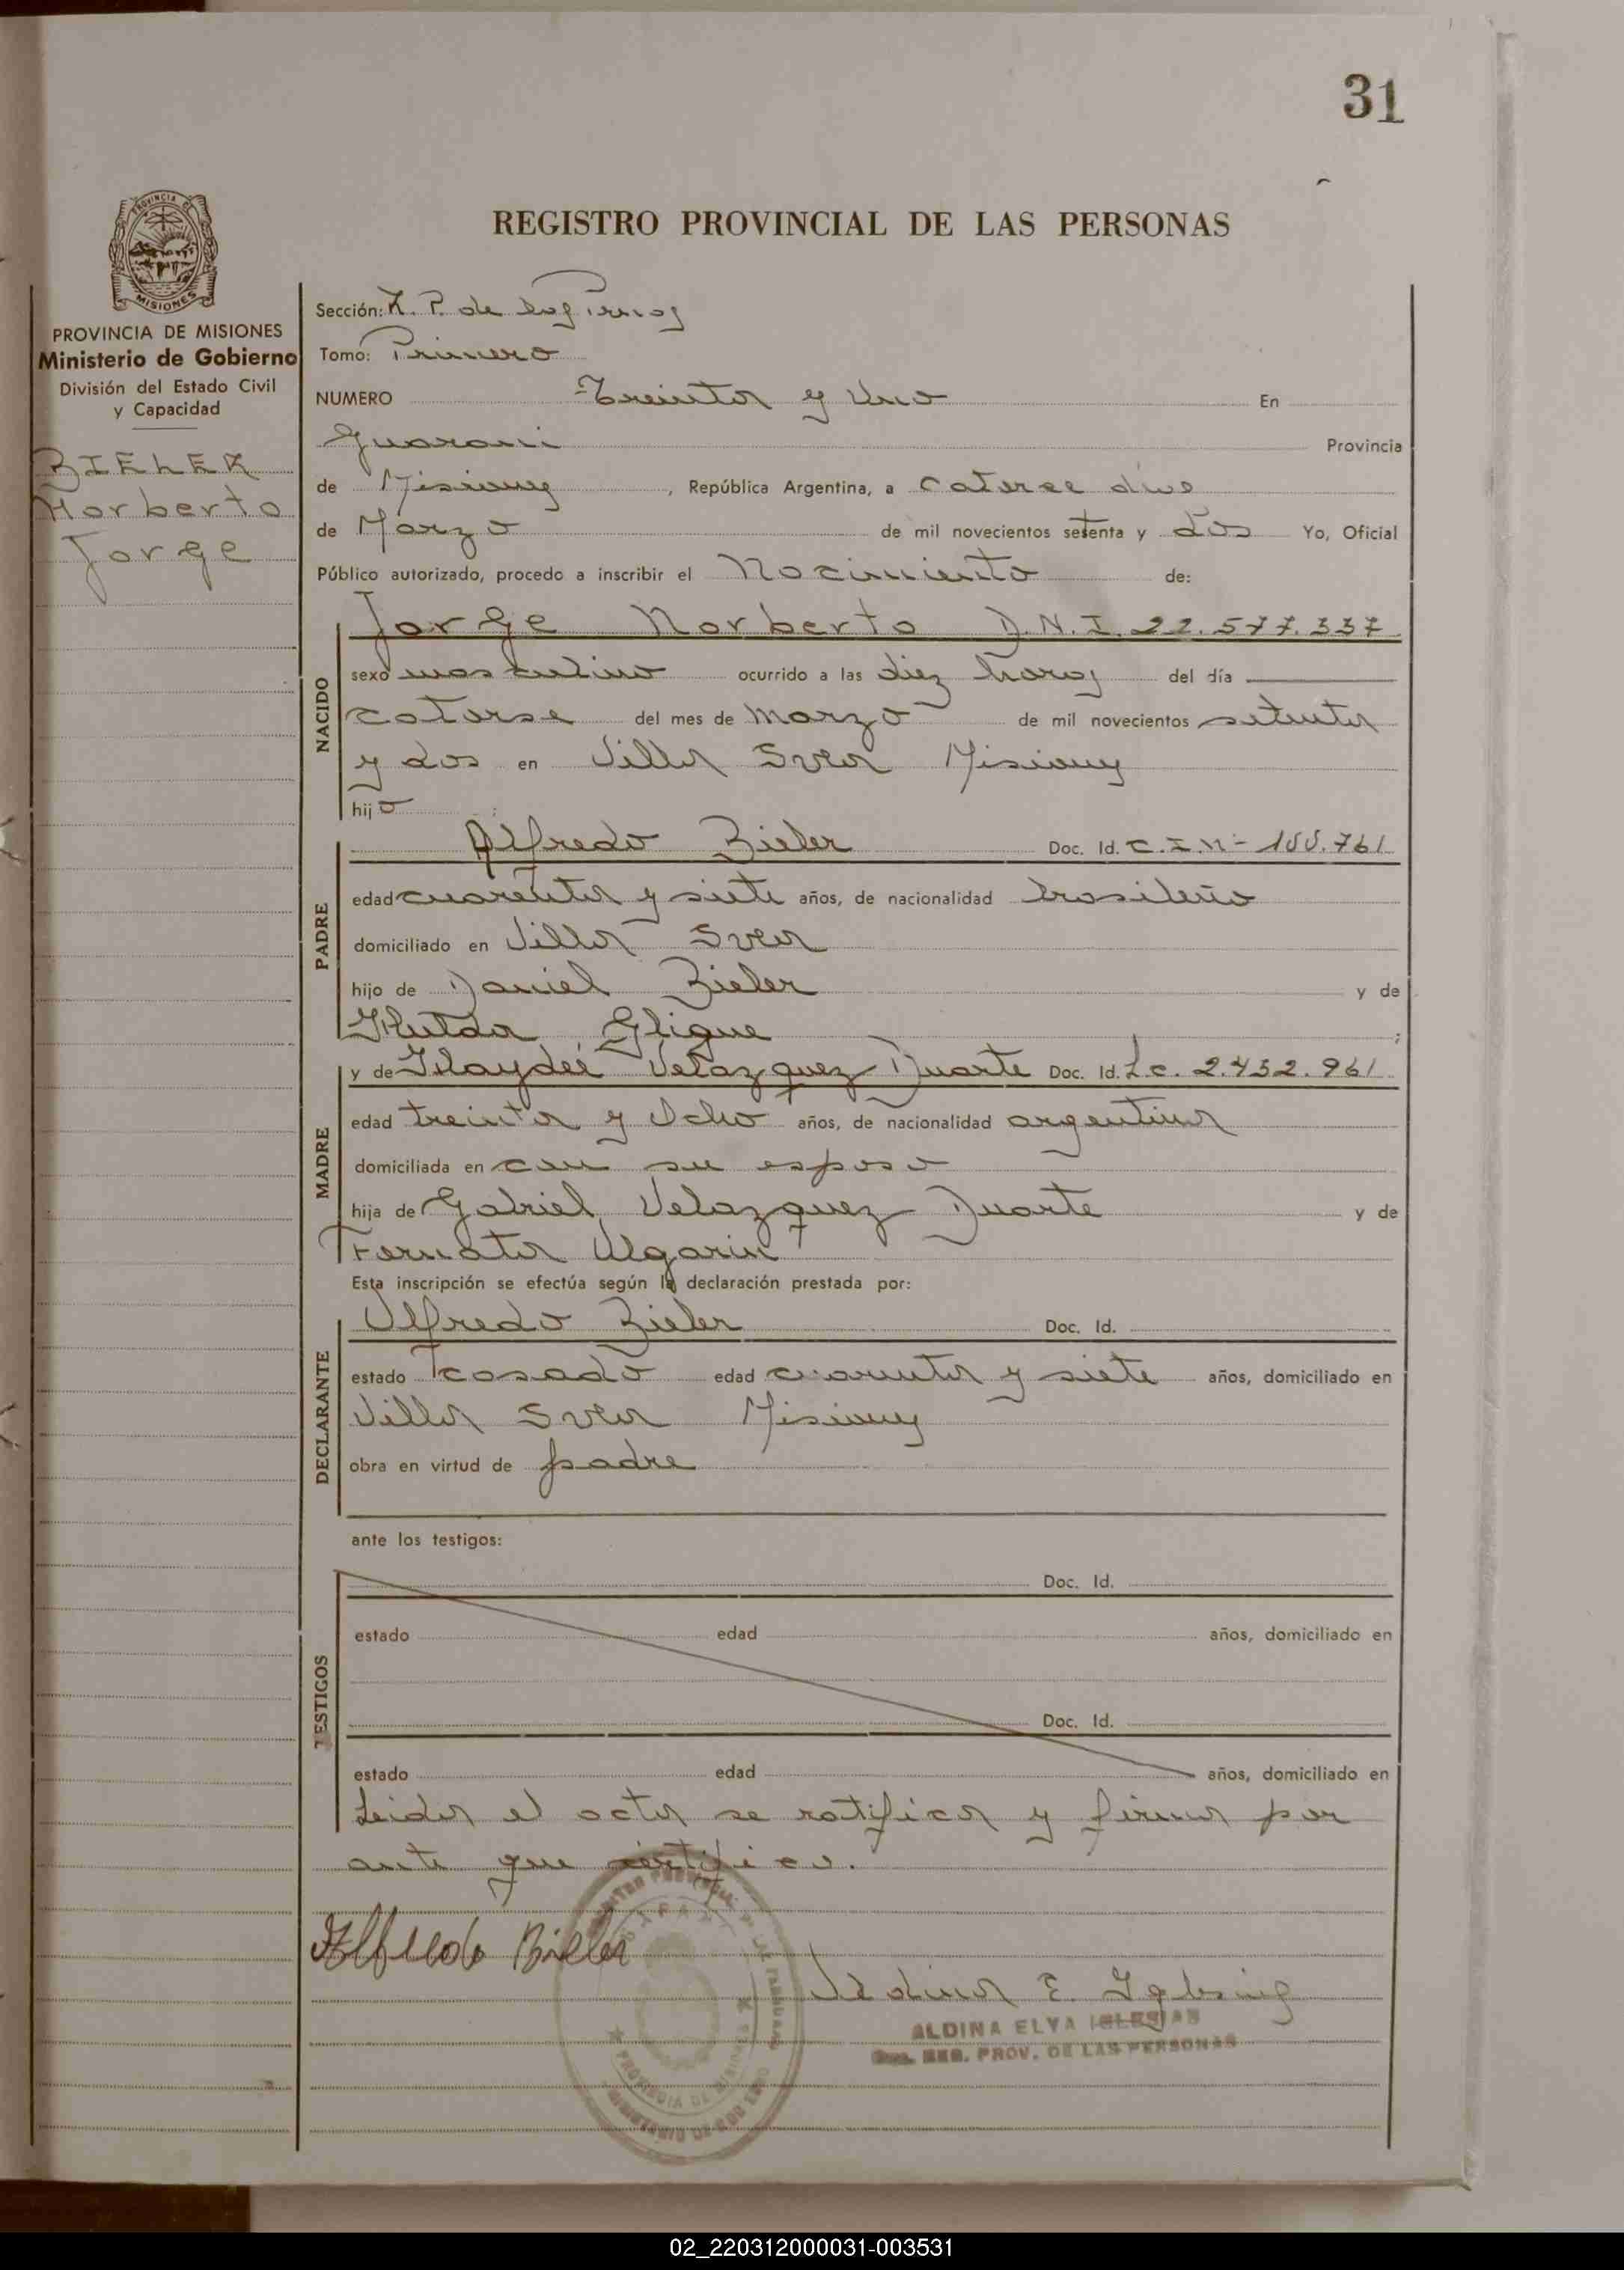 31
REGISTRO PROVINCIAL DE LAS PERSONAS
PROVINCIA DE MISIONES
Ministerio de Gobierno
División del Estado Civil
y Capacidad
BIELER
Norberto
Jorge
Sección: R. P. de las
Tomo: Primero
NUMERO Treinta y Uno En
Guarani Provincia
de Misiones, República Argentina, a catorce dias
de Marzo de mil novecientos setenta y dos Yo, Oficial
Público autorizado, procedo a inscribir el Nacimiento de:
NACIDO
Jorge Norberto D.N.I. 22.577.337
sexo masculino ocurrido a las diez horas del día
catorse del mes de Marzo de mil novecientos setenta
y dos en Villa Svea Misiones
hijo
PADRE
Alfredo Bieler Doc. Id. C.I.Nº 155.761
edad cuarenta y siete años, de nacionalidad brasileño
domiciliado en Villa Svea
hijo de Daniel Bieler y de
Hulda Gligue ;
MADRE
y de Haydeé Velazquez Duarte Doc. Id. L.c. 2.432.961
edad treinta y Ocho años, de nacionalidad argentina
domiciliada en con su esposo
hija de Gabriel Velazquez Duarte y de
Algarin
Esta inscripción se efectúa según la declaración prestada por:
DECLARANTE
Alfredo Bieler Doc. Id.
estado casado edad cuarenta y siete años, domiciliado en
Villa Svea Misiones
obra en virtud de padre
ante los testigos:
TESTIGOS
Doc. Id.
estado edad años, domiciliado en
Doc. Id.
estado edad años, domiciliado en
Leida el acta se ratifica y firma por
ante que certifico.
Alfredo Bieler
Aldina E. Iglesias
ALDINA ELVA IGLESIAS
REG. PROV. DE LAS PERSONAS
02_220312000031-003531